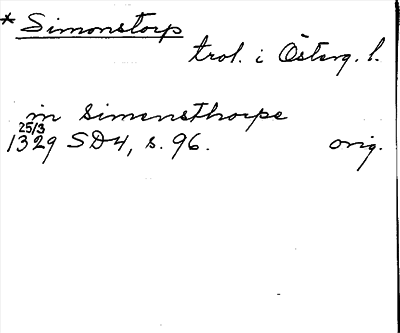 * Simonstorp
trol. i Österg. l.
in Simonsthorpe
25/3
1329 SD4, s. 96. orig.